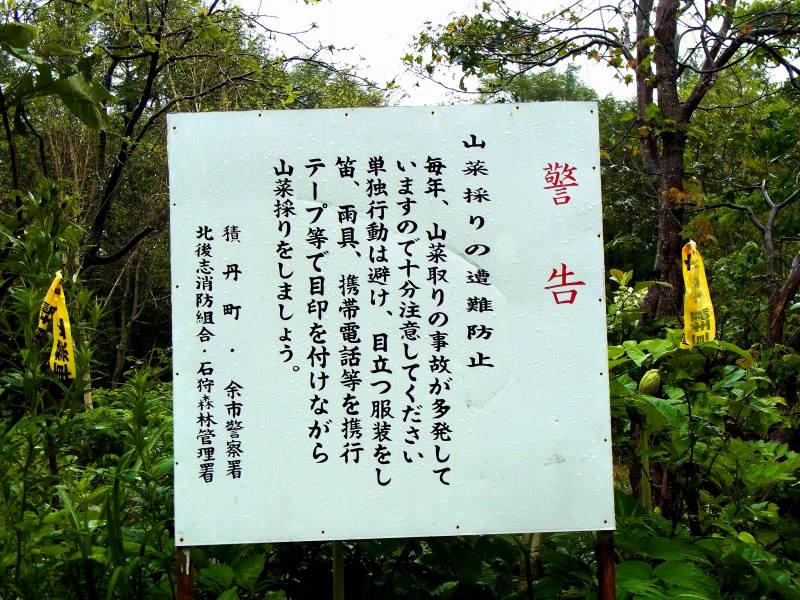 警告
山菜採りの遭難防止
毎年、山菜取りの事故が多発して
いますので十分注意してください
単独行動は避け、目立つ服装をし
笛、雨具、携帯電話等を携行
テープ等で目印を付けながら
山菜採りをしましょう。
積丹町・余市警察署
北後志消防組合・石狩森林管理署